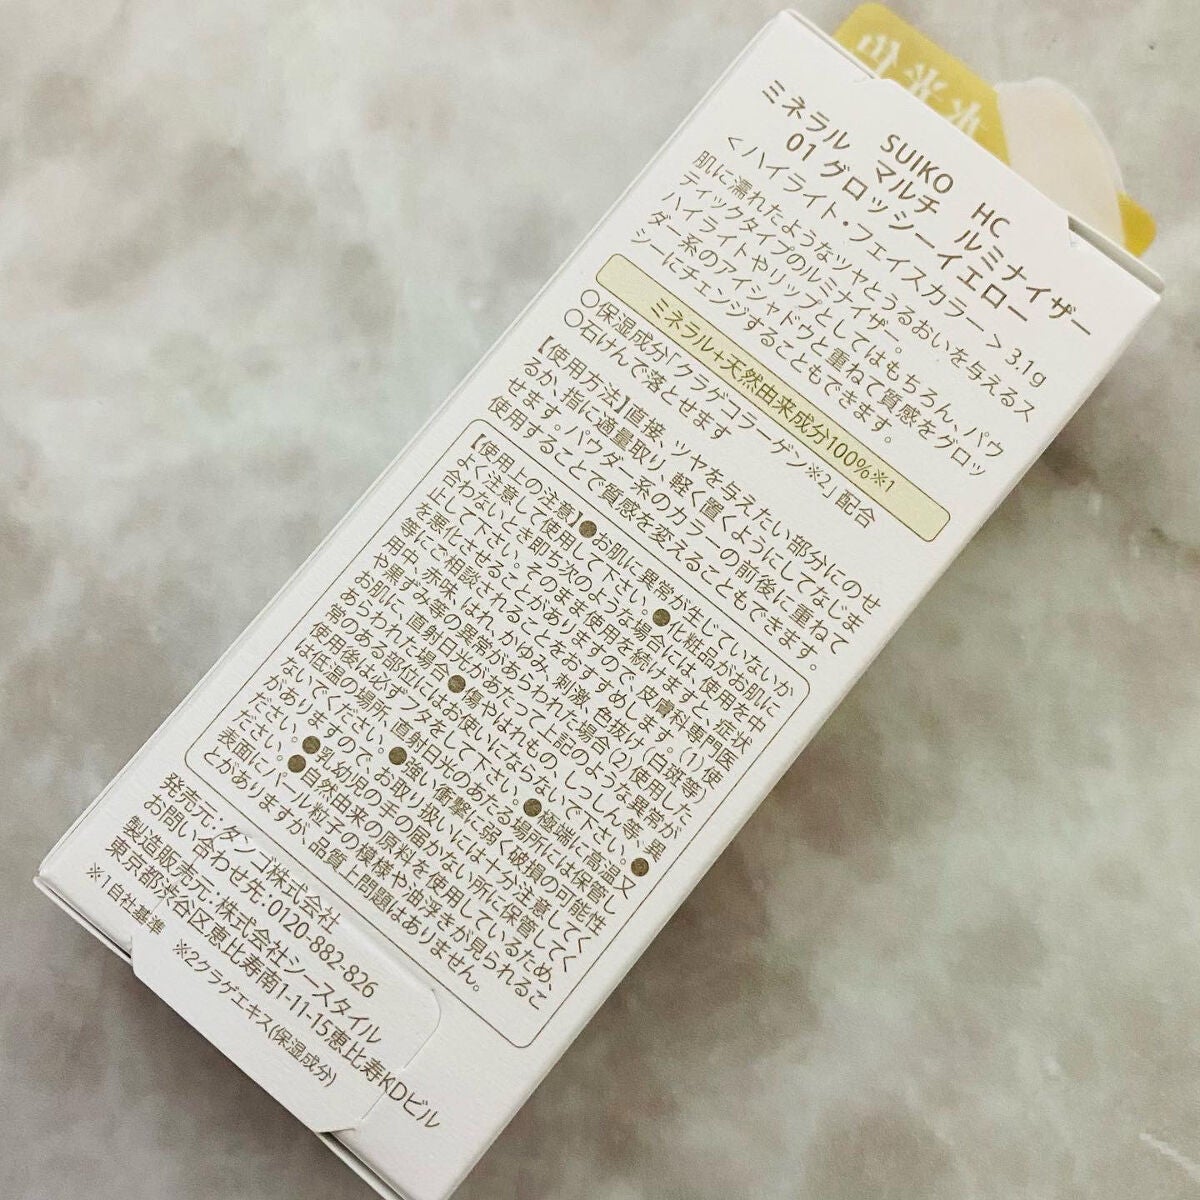 SUIKO HC
ミネラル マルチ ルミナイザー
01 グロッシーイエロー
<ハイライト・フェイスカラー> 3.1g
肌に濡れたようなツヤとうるおいを与えるス
ティックタイプのルミナイザー。
ハイライトやリップとしてはもちろん、パウ
ダー系のアイシャドウと重ねて質感をグロッ
シーにチェンジすることもできます。
ミネラル+天然由来成分100%※1
○保湿成分「クラゲコラーゲン※2」配合
○石けんで落とせます
【使用方法】直接、ツヤを与えたい部分にのせ
るか、指に適量取り、軽く置くようにしてなじま
せます。パウダー系のカラーの前後に重ねて
使用することで質感を変えることもできます。
【使用上の注意】●お肌に異常が生じていないか
よく注意して使用して下さい。●化粧品がお肌に
合わないとき即ち次のような場合には、使用を中
止して下さい。そのまま使用を続けますと、症状
を悪化させることがありますので、皮膚科専門医
等にご相談されることをおすすめします。(1)使
用中、赤味、はれ、かゆみ、刺激、色抜け(白斑等)
や黒ずみ等の異常があらわれた場合(2)使用した
お肌に、直射日光があたって上記のような異常が
あらわれた場合●傷やはれもの、しっしん等、異
常のある部位にはお使いにならないで下さい。●
使用後は必ずフタをして下さい。●極端に高温又
は低温の場所、直射日光のあたる場所には保管し
ないでください。●強い衝撃に弱く破損の可能性
がありますので、お取り扱いには十分注意してく
ださい。●乳幼児の手の届かない所に保管してく
ださい。●自然由来の原料を使用しているため、
表面にパール粒子の模様や油浮きが見られるこ
とがありますが、品質上問題はありません。
発売元:タンゴ株式会社
お問い合わせ先:0120-882-826
製造販売元:株式会社シースタイル
東京都渋谷区恵比寿南1-11-15恵比寿KDビル
※1自社基準 ※2クラゲエキス(保湿成分)